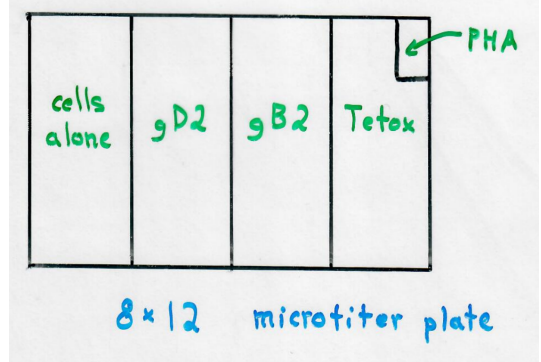 PHA
cells
alone
gD2
gB2
Tetox
8 × 12 microtiter plate